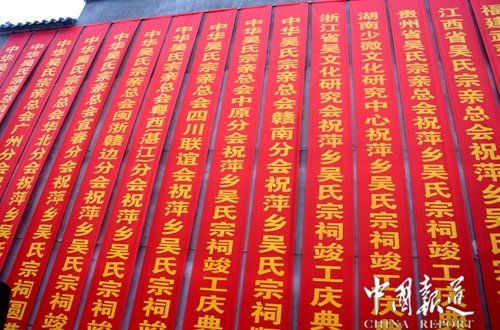 吴氏宗亲总会广州分会
中华吴氏宗亲总会华北分会祝萍乡吴氏宗祠圆
中华吴氏宗亲总会宜分会祝萍乡吴氏宗祠
中华吴氏宗亲总会闽浙赣边分会祝萍乡吴氏宗祠竣
中华吴氏宗亲总会粤西湛江分会祝萍乡吴氏宗祠竣工
中华吴氏宗亲总会四川联谊会祝萍乡吴氏宗祠竣工庆
中华吴氏宗亲总会中原分会祝萍乡吴氏宗祠竣工庆典
中华吴氏宗亲总会赣南分会祝萍乡吴氏宗祠竣工庆典
浙江省吴文化研究会祝萍乡吴氏宗祠竣工庆典
湖南少微文化研究中心祝萍乡吴氏宗祠竣工庆典
贵州省吴氏宗亲总会祝萍乡吴氏宗祠竣工庆
江西省吴氏宗亲总会祝萍乡吴氏宗
福建
中國報道
CHINA REPORT